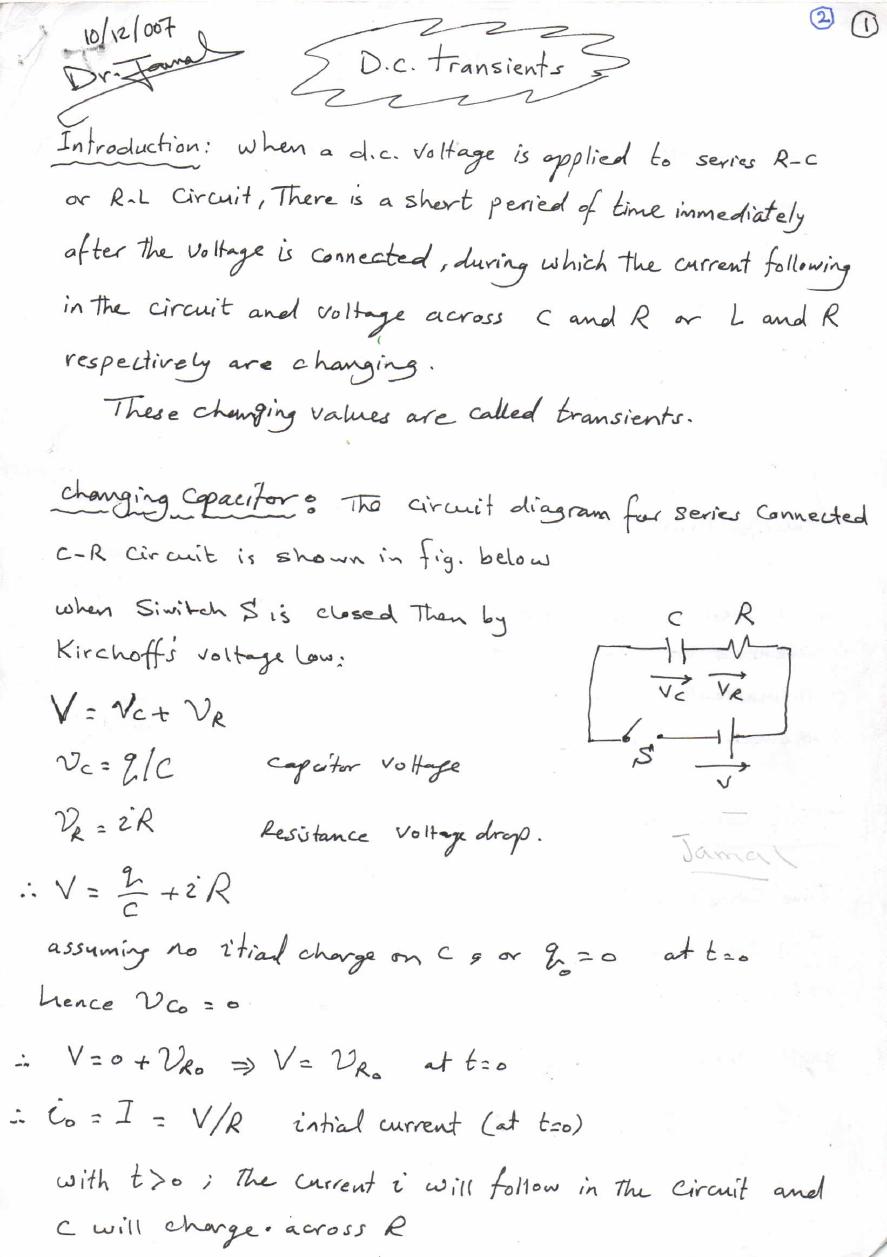 10/12/007
② ①
Dr. Jamal
D.C. transients
Introduction: when a d.c. voltage is applied to series R-C
or R-L Circuit, There is a short period of time immediately
after the voltage is connected, during which the current following
in the circuit and voltage across C and R or L and R
respectively are changing.
These changing values are called transients.
changing Capacitor: The circuit diagram for series Connected
C-R Circuit is shown in fig. below
when Siwitch S is closed Then by
Kirchoff's voltage low:
V = Vc + VR
Vc = q/C capcitor voltage
VR = iR Resistance Voltage drop.
∴ V = q/C + iR
assuming no itial charge on C, or q₀ = 0 at t=0
hence Vco = 0
∴ V = 0 + VRo ⇒ V = VRo at t=0
∴ i₀ = I = V/R intial current (at t=0)
with t>0 ; The current i will follow in The Circuit and
C will charge. across R
C R
Vc VR
S
V
Jamal